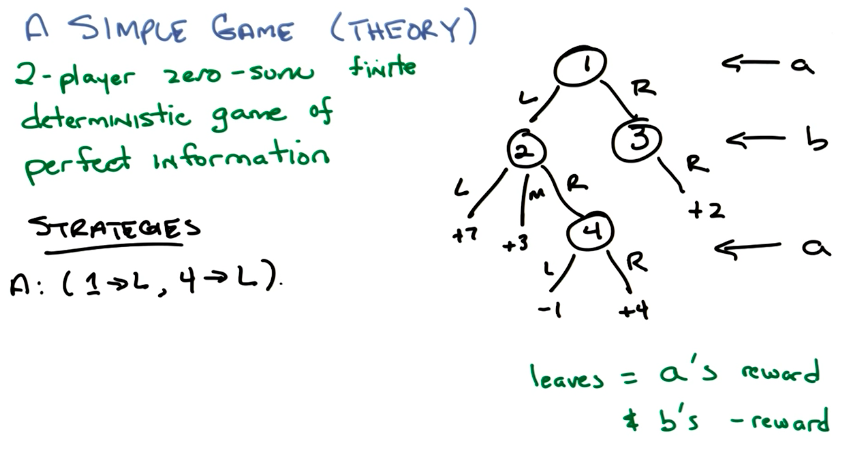 A SIMPLE GAME (THEORY)
2-player zero-sum finite
deterministic game of
perfect information
STRATEGIES
A: (1→L, 4→L).
1 ← a
L R
2 3 ← b
L M R R
+7 +3 4 +2 ← a
L R
-1 +4
leaves = a's reward
& b's -reward